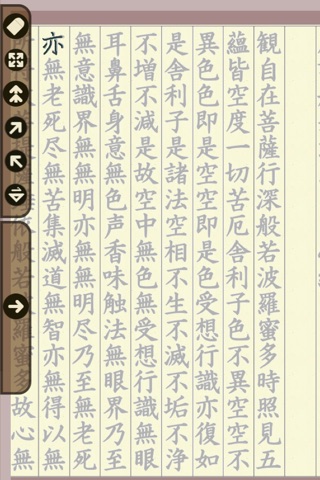 観自在菩薩行深般若波羅蜜多時照見五
蘊皆空度一切苦厄舎利子色不異空空不
異色色即是空空即是色受想行識亦復如
是舎利子是諸法空相不生不滅不垢不浄
不増不減是故空中無色無受想行識無眼
耳鼻舌身意無色声香味触法無眼界乃至
無意識界無無明亦無無明尽乃至無老死
亦無老死尽無苦集滅道無智亦無得以無
故心無